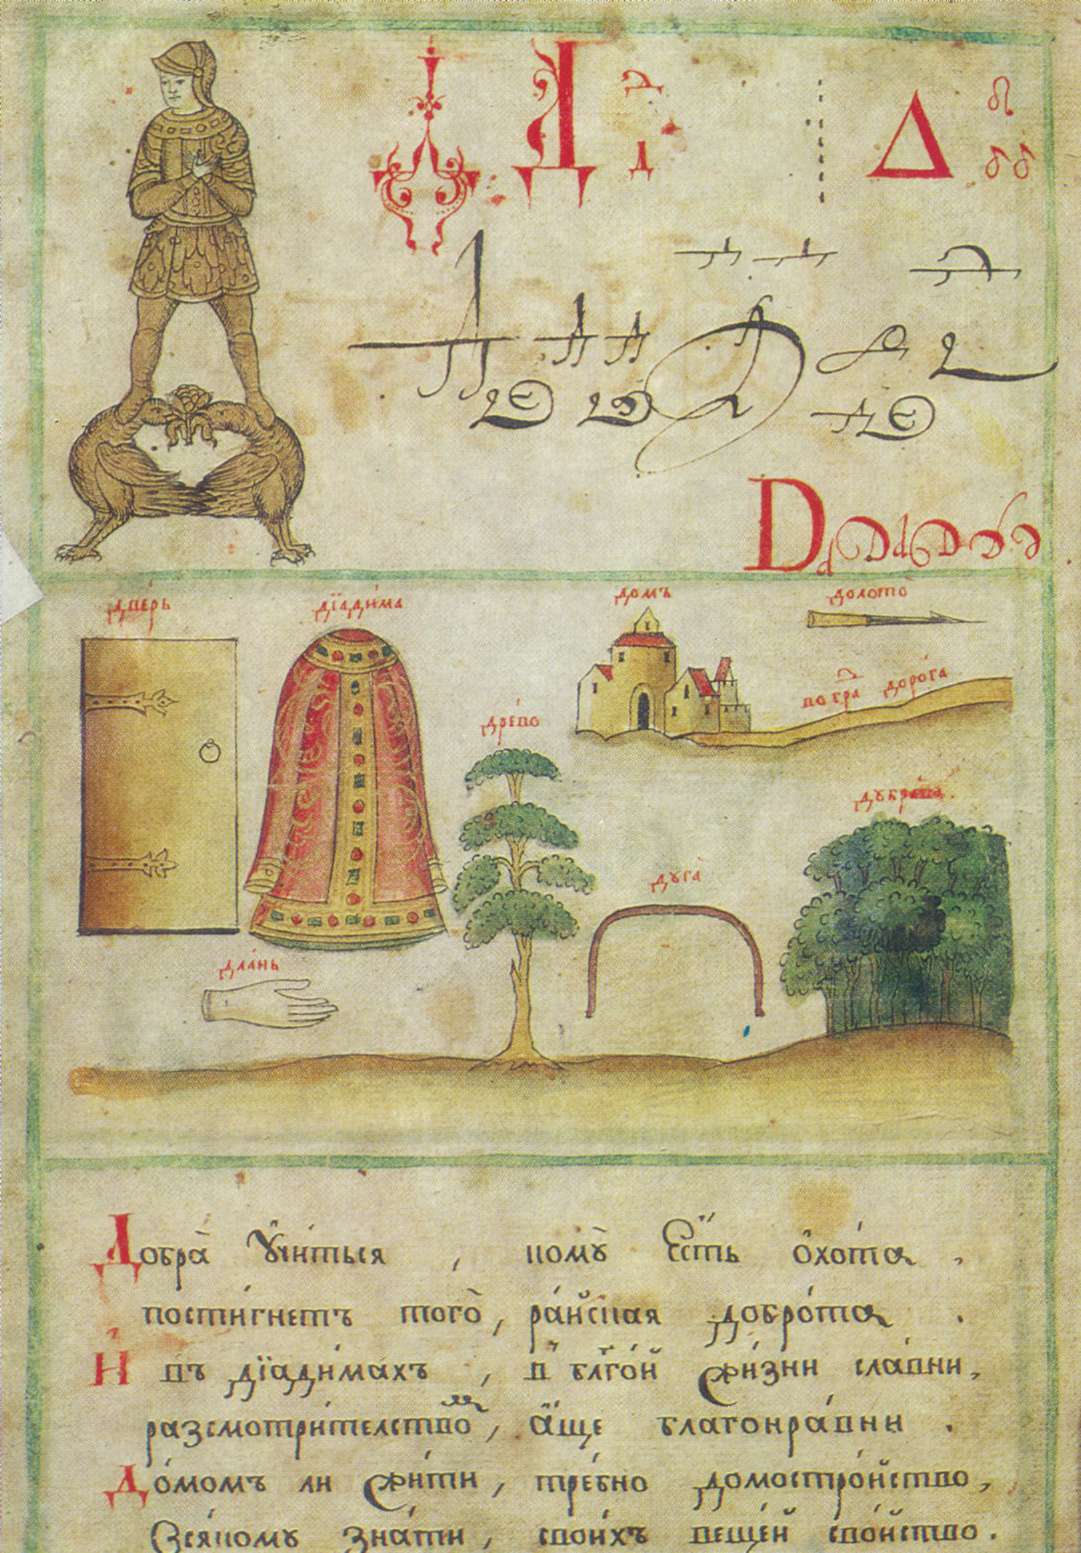 Д Д д Δ
д
D d D d D
две́рь
дїади́ма
домъ
долото̀
дре́во
добра доро́га
дубра́ва
дуга̀
дла́нь
Добра̀ Ѹчи́ться, кому̀ Е́сть ѻ҆хо́та,
пости́гнетъ того̀, ра́йская добро́та.
И҆ въ дїади́махъ, в бл҃го́й жи́зни сла́вни,
разсмотри́телство, а҆́ще благонра́вни.
До́момъ ли жи́ти, тре́бно домостро́йство,
Вся́кому зна́ти, свои́хъ веще́й сво́йство.